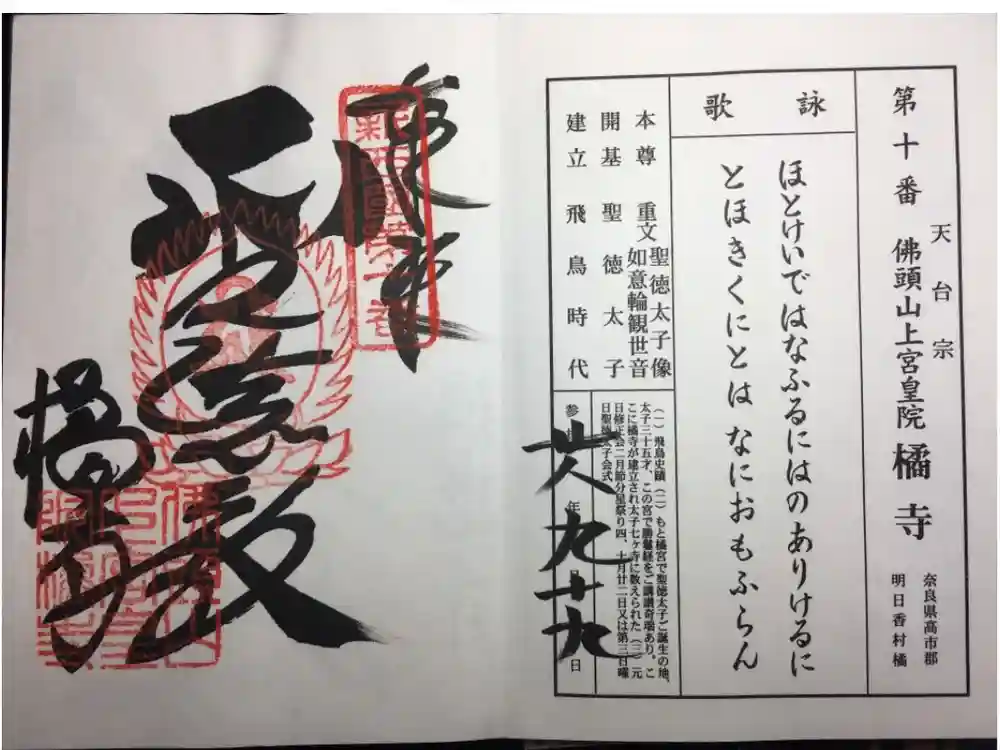 天台宗
第十番 佛頭山上宮皇院 橘寺
奈良県高市郡
明日香村橘
詠歌
ほとけいではなふるにはのありけるに
とほきくにとは なにおもふらん
本尊 重文 聖徳太子像
如意輪観世音
開基 聖徳太子
建立 飛鳥時代
(一)飛鳥史蹟(二)もと橘宮で聖徳太子ご誕生の地、
太子三十五才、この宮で勝鬘経をご講議奇瑞あり、こ
こに橘寺が建立され太子七ヶ寺に数えられた(三)元
日修正会二月節分星祭り四、十月廿二日又は第三日曜
日聖徳太子会式。
参 年 月 日
廿八 九 十九
奉拝
橘寺